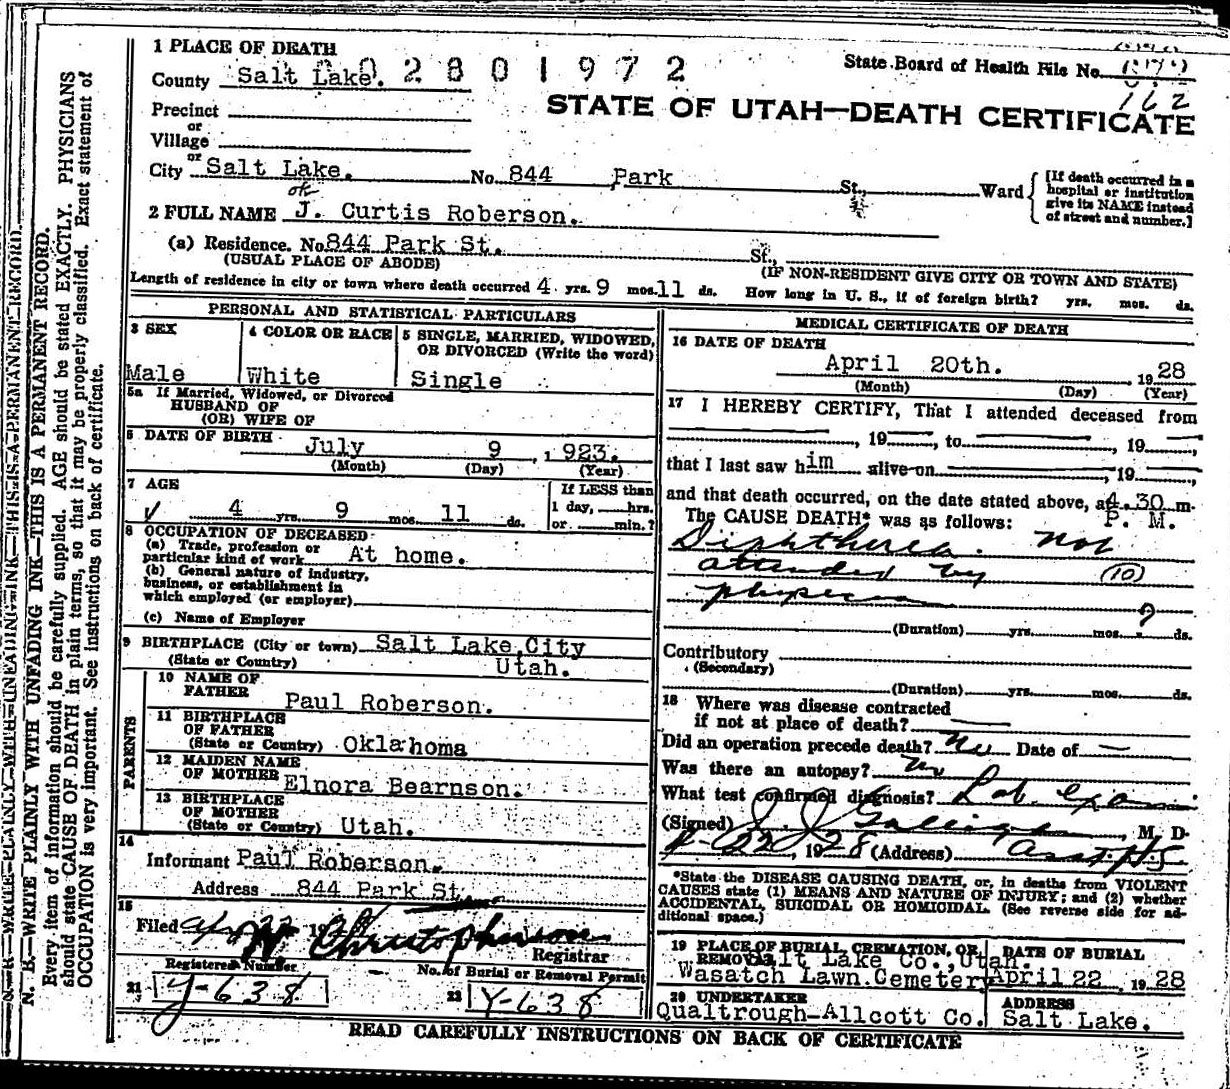 1 PLACE OF DEATH
County Salt Lake. 02801972
State Board of Health File No.
162
STATE OF UTAH—DEATH CERTIFICATE
Precinct
or
Village
or
City Salt Lake. No. 844 Park St., Ward
[If death occurred in a hospital or institution give its NAME instead of street and number.]
ok
2 FULL NAME J. Curtis Roberson.
(a) Residence. No. 844 Park St. St.,
(USUAL PLACE OF ABODE) (IF NON-RESIDENT GIVE CITY OR TOWN AND STATE)
Length of residence in city or town where death occurred 4 yrs. 9 mos. 11 ds. How long in U. S., if of foreign birth? yrs. mos. ds.
PERSONAL AND STATISTICAL PARTICULARS
3 SEX
Male
4 COLOR OR RACE
White
5 SINGLE, MARRIED, WIDOWED, OR DIVORCED (Write the word)
Single
5a If Married, Widowed, or Divorced
HUSBAND OF
(OR) WIFE OF
6 DATE OF BIRTH
July 9, 1923.
(Month) (Day) (Year)
7 AGE
4 yrs. 9 mos. 11 ds.
If LESS than
1 day, hrs.
or min.?
8 OCCUPATION OF DECEASED
(a) Trade, profession or
particular kind of work At home.
(b) General nature of industry,
business, or establishment in
which employed (or employer)
(c) Name of Employer
9 BIRTHPLACE (City or town) Salt Lake City
(State or Country) Utah.
PARENTS
10 NAME OF
FATHER Paul Roberson.
11 BIRTHPLACE
OF FATHER
(State or Country) Oklahoma
12 MAIDEN NAME
OF MOTHER Elnora Bearnson.
13 BIRTHPLACE
OF MOTHER
(State or Country) Utah.
14
Informant Paul Roberson.
Address 844 Park St.
15
Filed Apr 22 19 Christopherson
Registrar
Registered Number
No. of Burial or Removal Permit
21 Y-638
22 Y-638
MEDICAL CERTIFICATE OF DEATH
16 DATE OF DEATH
April 20th. , 1928
(Month) (Day) (Year)
17 I HEREBY CERTIFY, That I attended deceased from
, 19 , to , 19
that I last saw him alive on , 19
and that death occurred, on the date stated above, at 4.30 m.
P. M.
The CAUSE DEATH* was as follows:
Diphtheria. Not
attended by (10)
physician
9
(Duration) yrs. mos. ds.
Contributory
(Secondary)
(Duration) yrs. mos. ds.
18 Where was disease contracted
if not at place of death?
Did an operation precede death? No Date of —
Was there an autopsy? no
What test confirmed diagnosis? Lab. exam
(Signed) J. J. Galligan, M. D.
4-22, 1928 (Address) Asst. H.S.
*State the DISEASE CAUSING DEATH, or, in deaths from VIOLENT
CAUSES state (1) MEANS AND NATURE OF INJURY; and (2) whether
ACCIDENTAL, SUICIDAL OR HOMICIDAL. (See reverse side for ad-
ditional space.)
19 PLACE OF BURIAL, CREMATION, OR
REMOVAL Salt Lake Co., Utah.
Wasatch Lawn Cemetery
DATE OF BURIAL
April 22, 1928
20 UNDERTAKER
Qualtrough-Allcott Co.
ADDRESS
Salt Lake.
READ CAREFULLY INSTRUCTIONS ON BACK OF CERTIFICATE
N. B.—WRITE PLAINLY WITH UNFADING INK—THIS IS A PERMANENT RECORD.
N. B.—WRITE PLAINLY WITH UNFADING INK—THIS IS A PERMANENT RECORD.
Every item of information should be carefully supplied. AGE should be stated EXACTLY. PHYSICIANS
should state CAUSE OF DEATH in plain terms, so that it may be properly classified. Exact statement of
OCCUPATION is very important. See instructions on back of certificate.